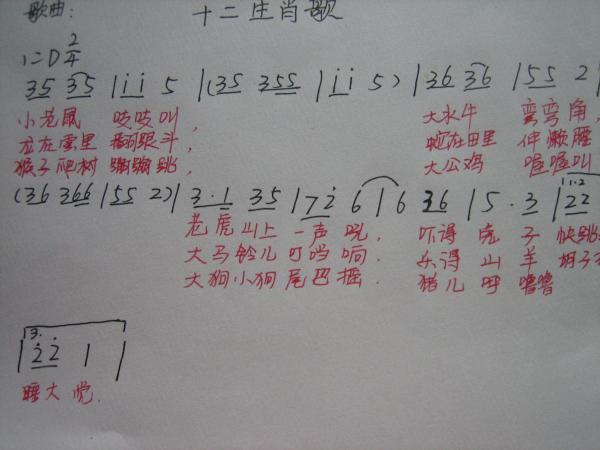 歌曲: 十二生肖歌
1=D 2/4
35 35 | i i 5 | (35 355 | i i 5) | 36 36 | 55 2 |
小老鼠 吱吱叫, 大水牛 弯弯角,
龙在雲里 翻跟斗, 蛇在田里 伸懒腰
猴子爬树 蹦蹦跳, 大公鸡 喔喔叫
(36 366 | 155 2) | 3·1 35 | 72 6 | 6 36 | 5·3 | 22
老虎山上一声吼, 吓得兔子快跳
大马铃儿叮当响. 乐得山羊胡子
大狗小狗尾巴摇. 猪儿呼噜噜
3.
| 2 2 1 |
睡大觉.